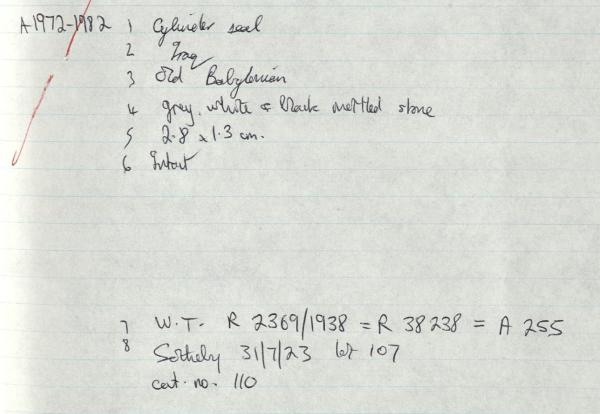 A1972-1982 1 Cylinder seal
2 Iraq
3 Old Babylonian
4 grey, white & black mottled stone
5 2.8 x 1.3 cm.
6 Intact
7 W.T. R 2369/1938 = R 38238 = A 255
8 Sotheby 31/7/23 lot 107
cat. no. 110